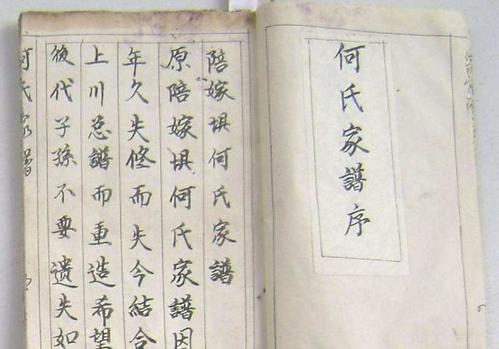 何氏家譜序
陪嫁埧何氏家譜
原陪嫁埧何氏家譜因
年久失修而失今結合
上川总譜而重造希望
後代子孫不要遺失如
何氏家譜